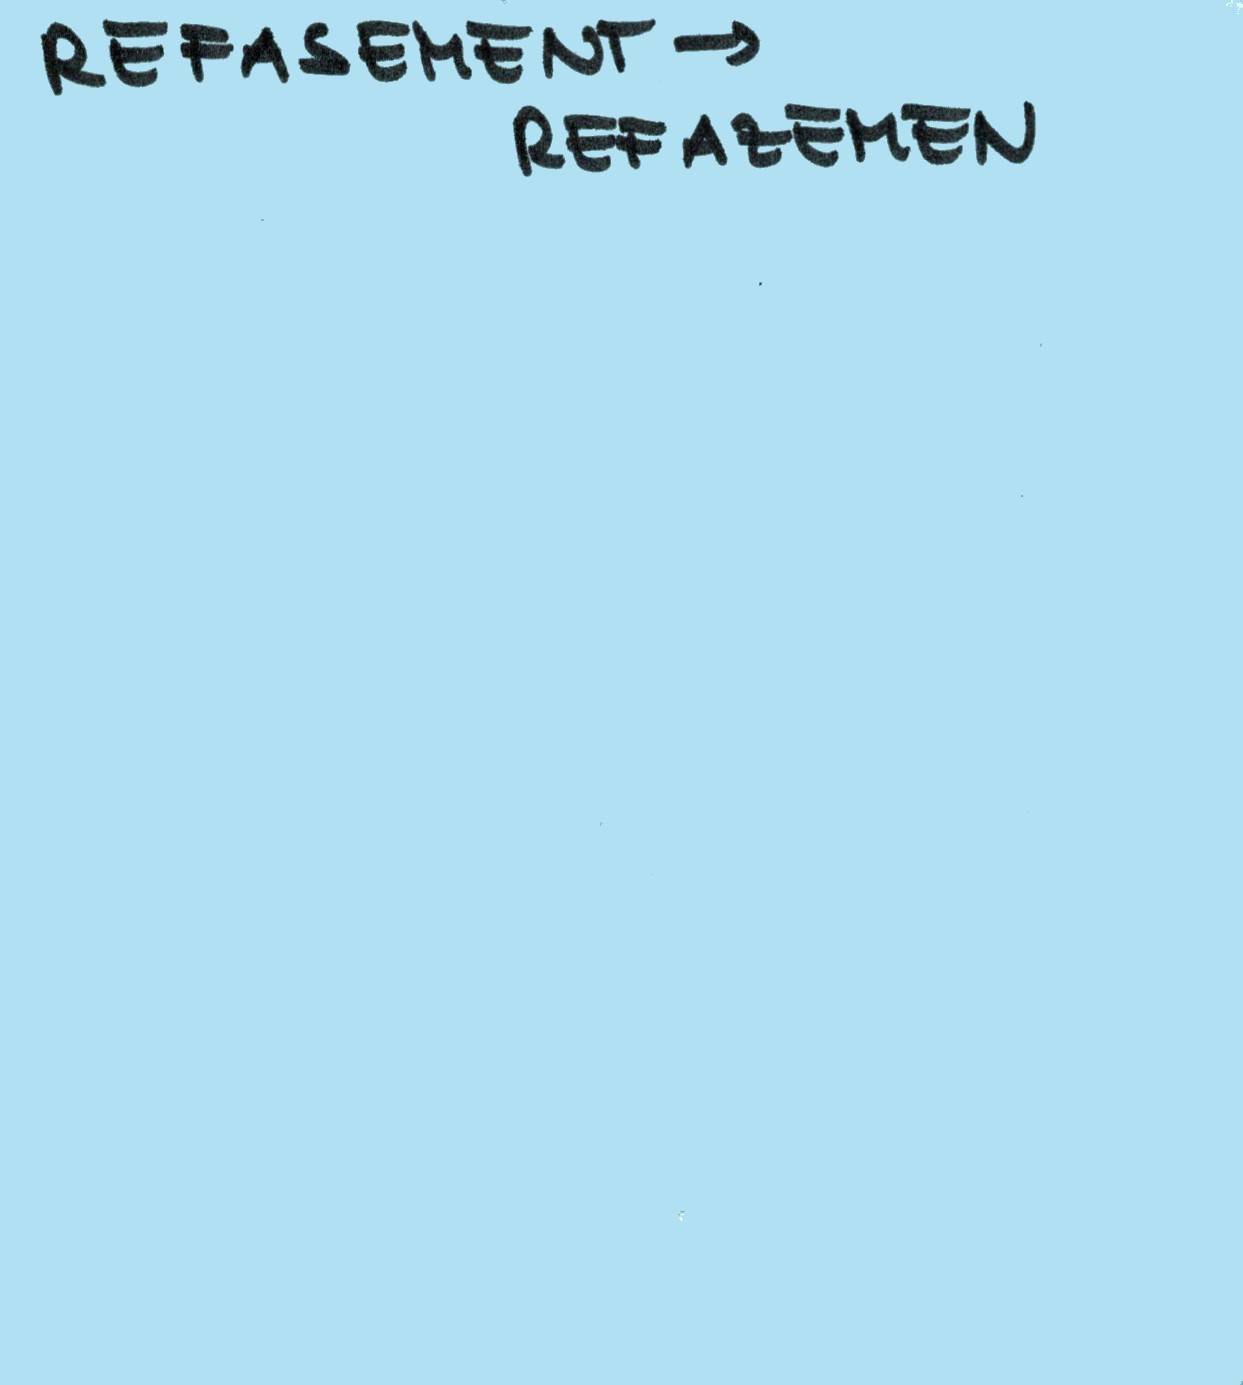 REFASEMENT →
REFAZEMEN